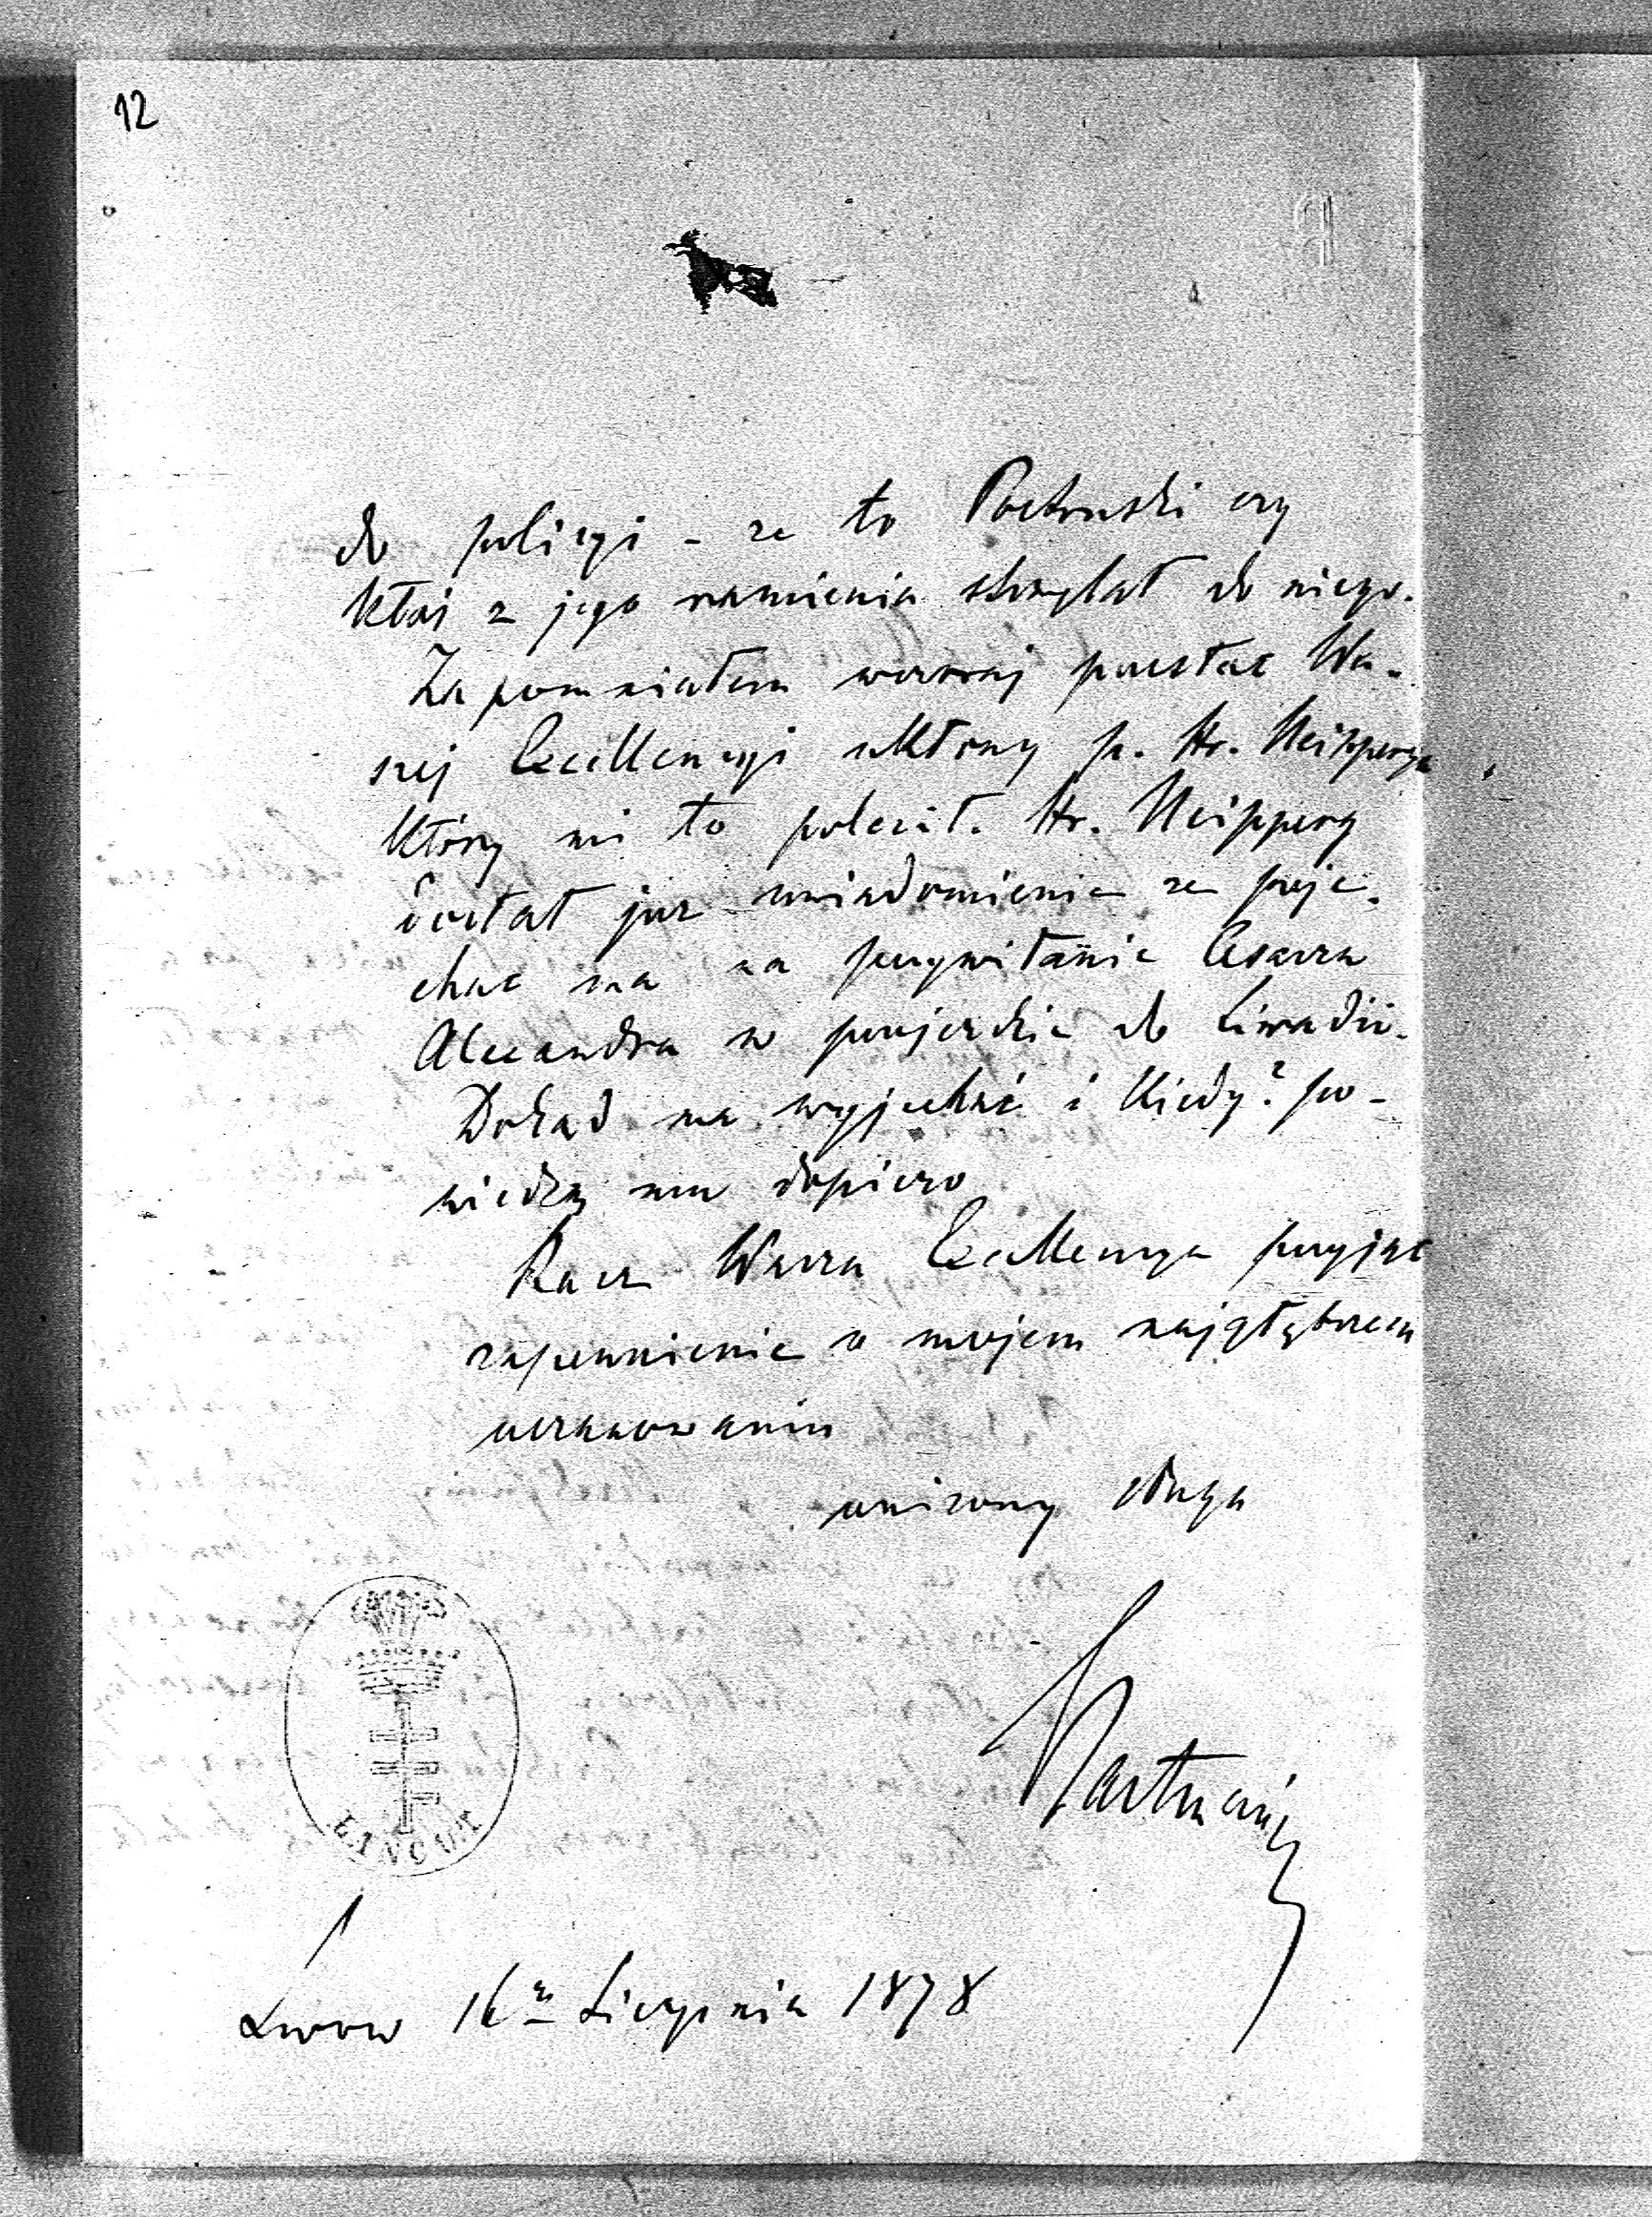 12
do policyi - ze to Pietruski czy
ktoś z jego ramienia strzelał do niego.
Zapomniałem wczoraj przesłać Wa-
szej Excellencyi ukłony p. Hr. Neipperga,
który mi to polecił. Hr. Neipperg
dostał juz uwiadomienie ze poje-
chac ma na przywitanie Cesarza
Alexandra w przejezdzie do Liwadii.
Dokąd ma wyjechać i kiedy? po-
wiedzą mu dopiero
Racz Wasza Excellencya przyjąc
zapewnienie o mojem najgłębszem
uszanowaniu
unizony sługa
Bartmański
ŁAŃCUT
Lwow 16go Sierpnia 1878